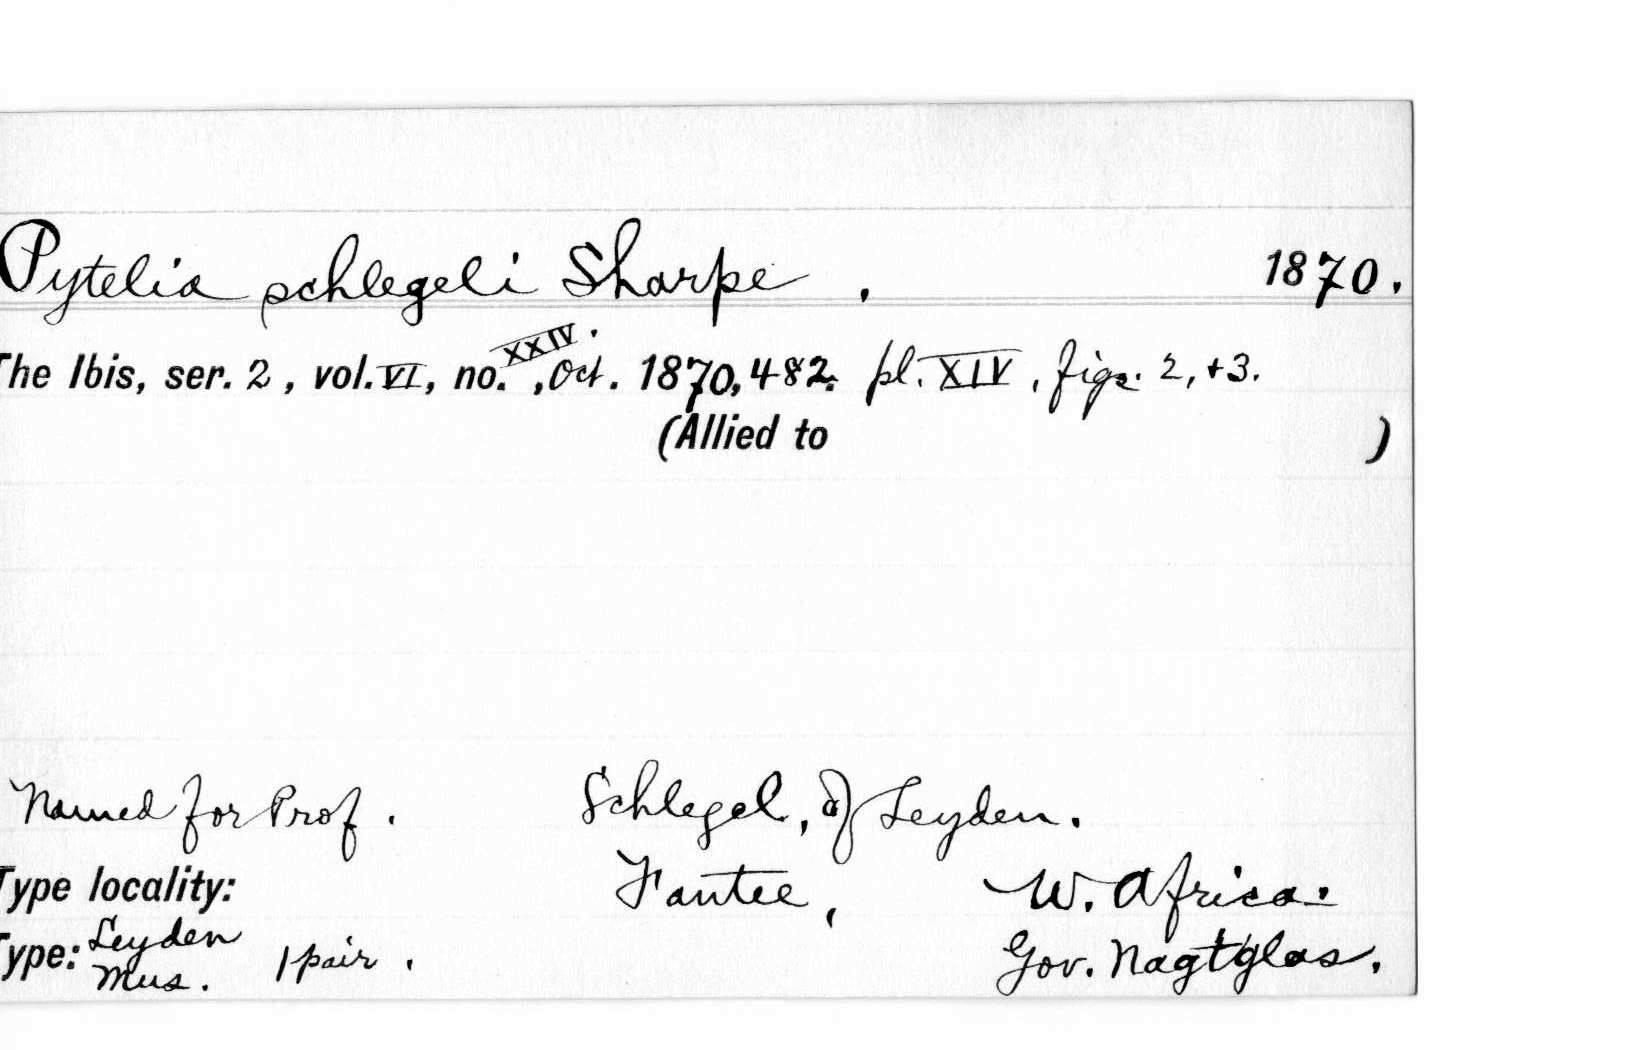 Pytelia schlegeli Sharpe . 1870.
The Ibis, ser. 2, vol. VI, no. XXIV. , Oct. 1870, 482. pl. XIV, figs. 2, +3.
(Allied to )
Named for Prof. Schlegel, of Leyden.
Type locality: Fantee, W. Africa.
Type: Leyden Mus. 1 pair. Gov. Nagtglas.